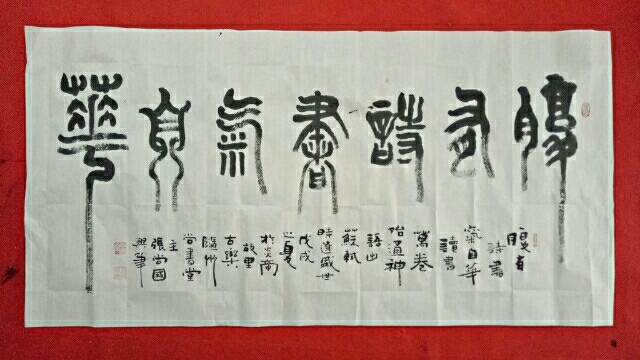 腹有詩書氣自華
腹有
詩書
氣自華
讀書
萬卷
始通神
語出
蘇軾
時逢盛世
戊戌
之夏
於炎帝
故里
古樂
隨州
尚書堂
主
張尚國
興筆